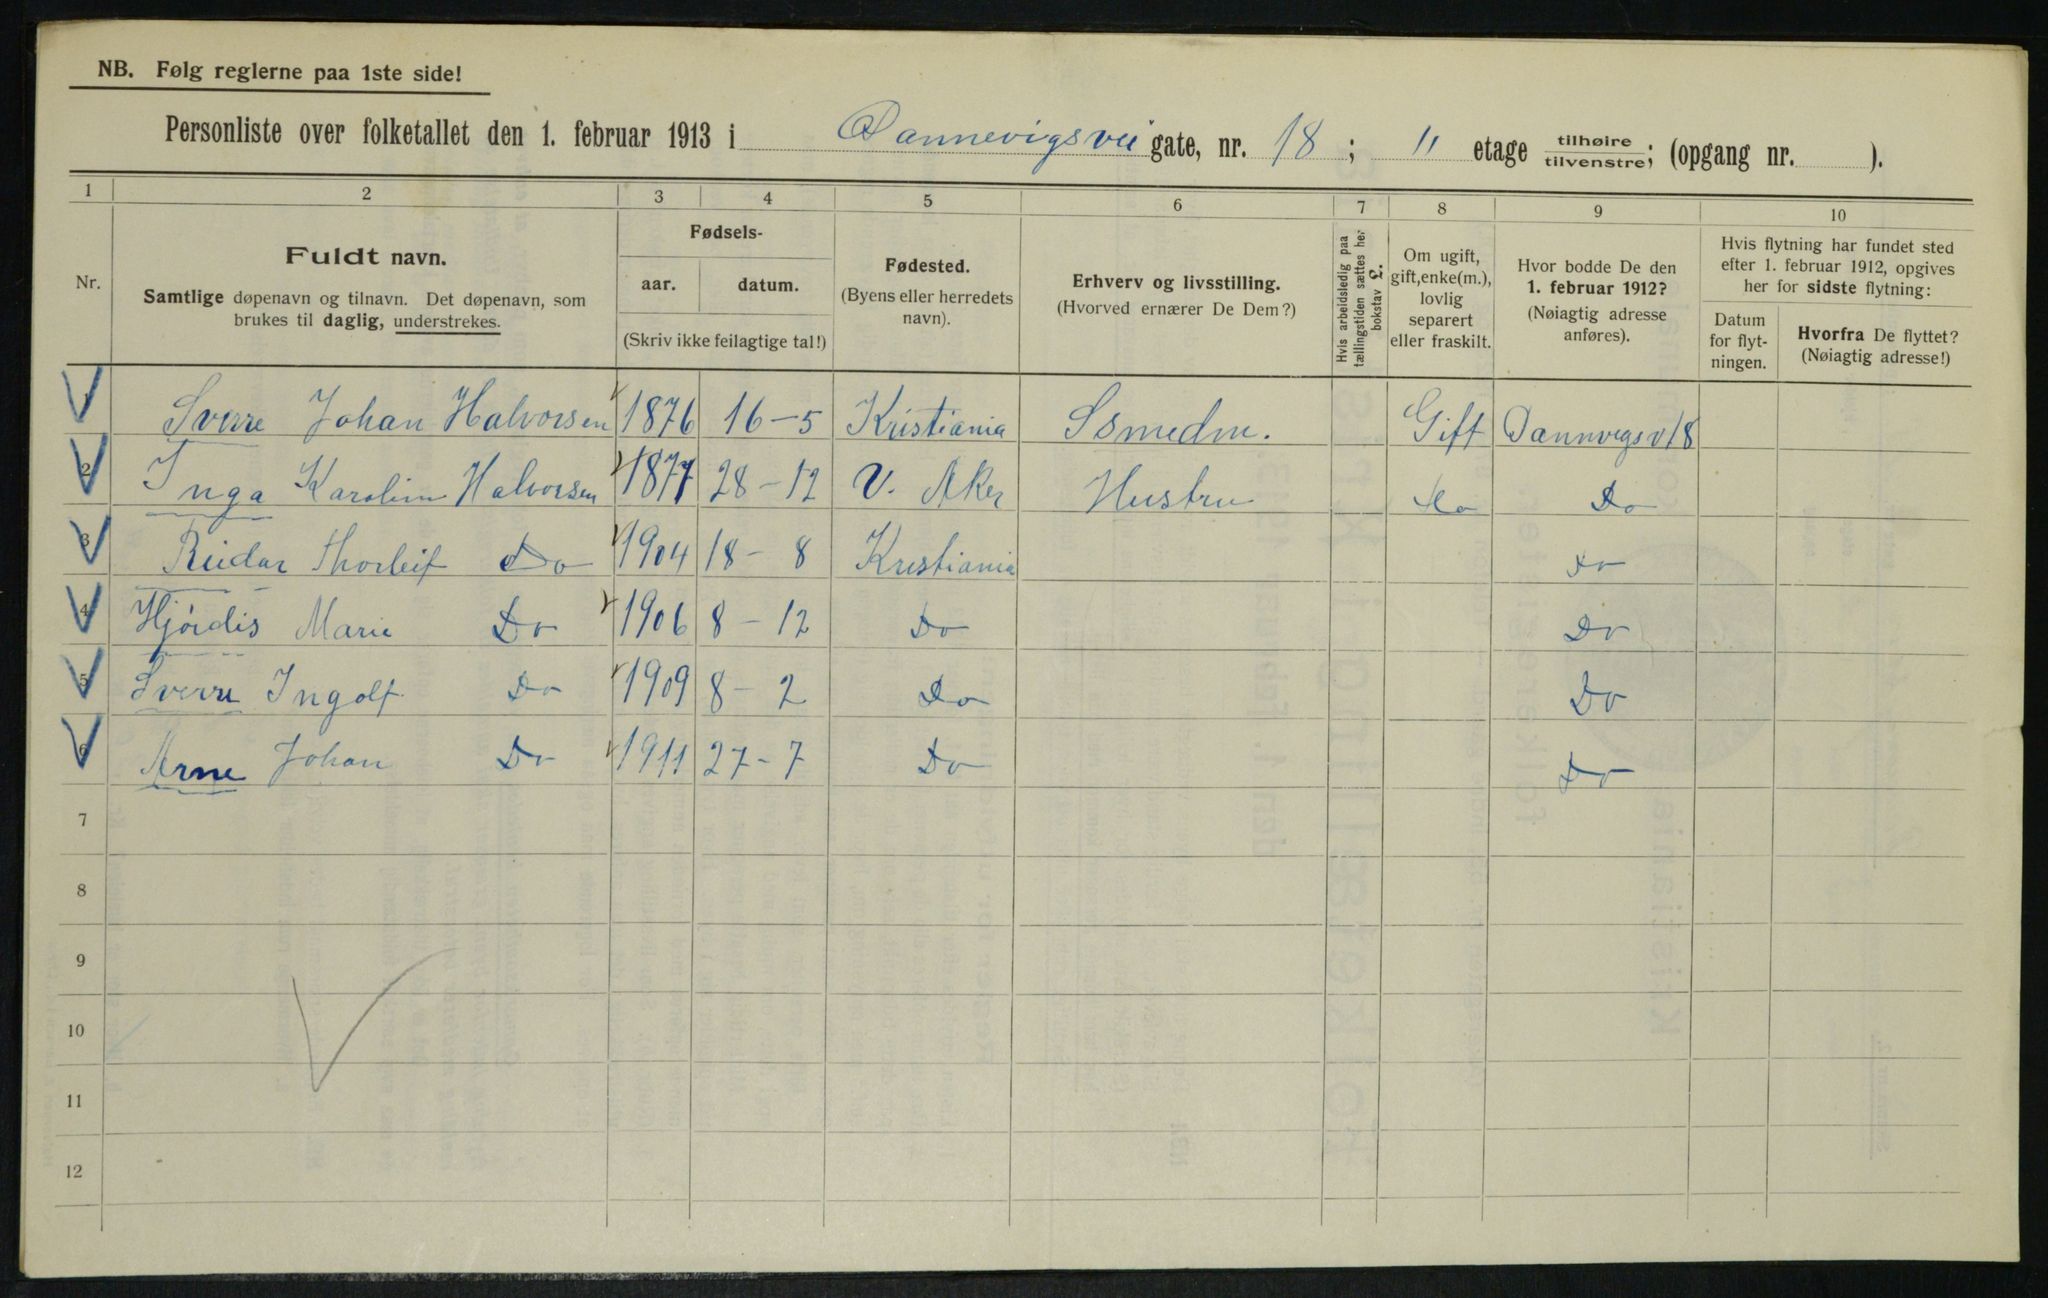 NB. Følg reglerne paa 1ste side!
Personliste over folketallet den 1. februar 1913 i Dannevigsvei gate, nr. 18; 11 etage tilhøire/tilvenstre; (opgang nr. ).
1 2 3 4 5 6 7 8 9 10
Nr.
Fuldt navn.
Samtlige døpenavn og tilnavn. Det døpenavn, som
brukes til daglig, understrekes.
Fødsels-
aar. datum.
(Skriv ikke feilagtige tal!)
Fødested.
(Byens eller herredets
navn).
Erhverv og livsstilling.
(Hvorved ernærer De Dem?)
Hvis arbeidsledig paa
tællingstiden sættes her
bokstav L.
Om ugift,
gift, enke(m.),
lovlig
separert
eller fraskilt.
Hvor bodde De den
1. februar 1912?
(Nøiagtig adresse
anføres).
Hvis flytning har fundet sted
efter 1. februar 1912, opgives
her for sidste flytning:
Datum
for flyt-
ningen.
Hvorfra De flyttet?
(Nøiagtig adresse!)
1 Sverre Johan Halvorsen 1876 16-5 Kristiania Ssmedm. Gift Dannvegsv 18
2 Inga Karolin Halvorsen 1877 28-12 V. Aker Hustru do Do
3 Reidar Thorleif Do 1904 18-8 Kristiania do
4 Hjørdis Marie Do 1906 8-12 Do Do
5 Sverre Ingolf Do 1909 8-2 Do Do
6 Arne Johan Do 1911 27-7 Do Do
7
8
9
10
11
12